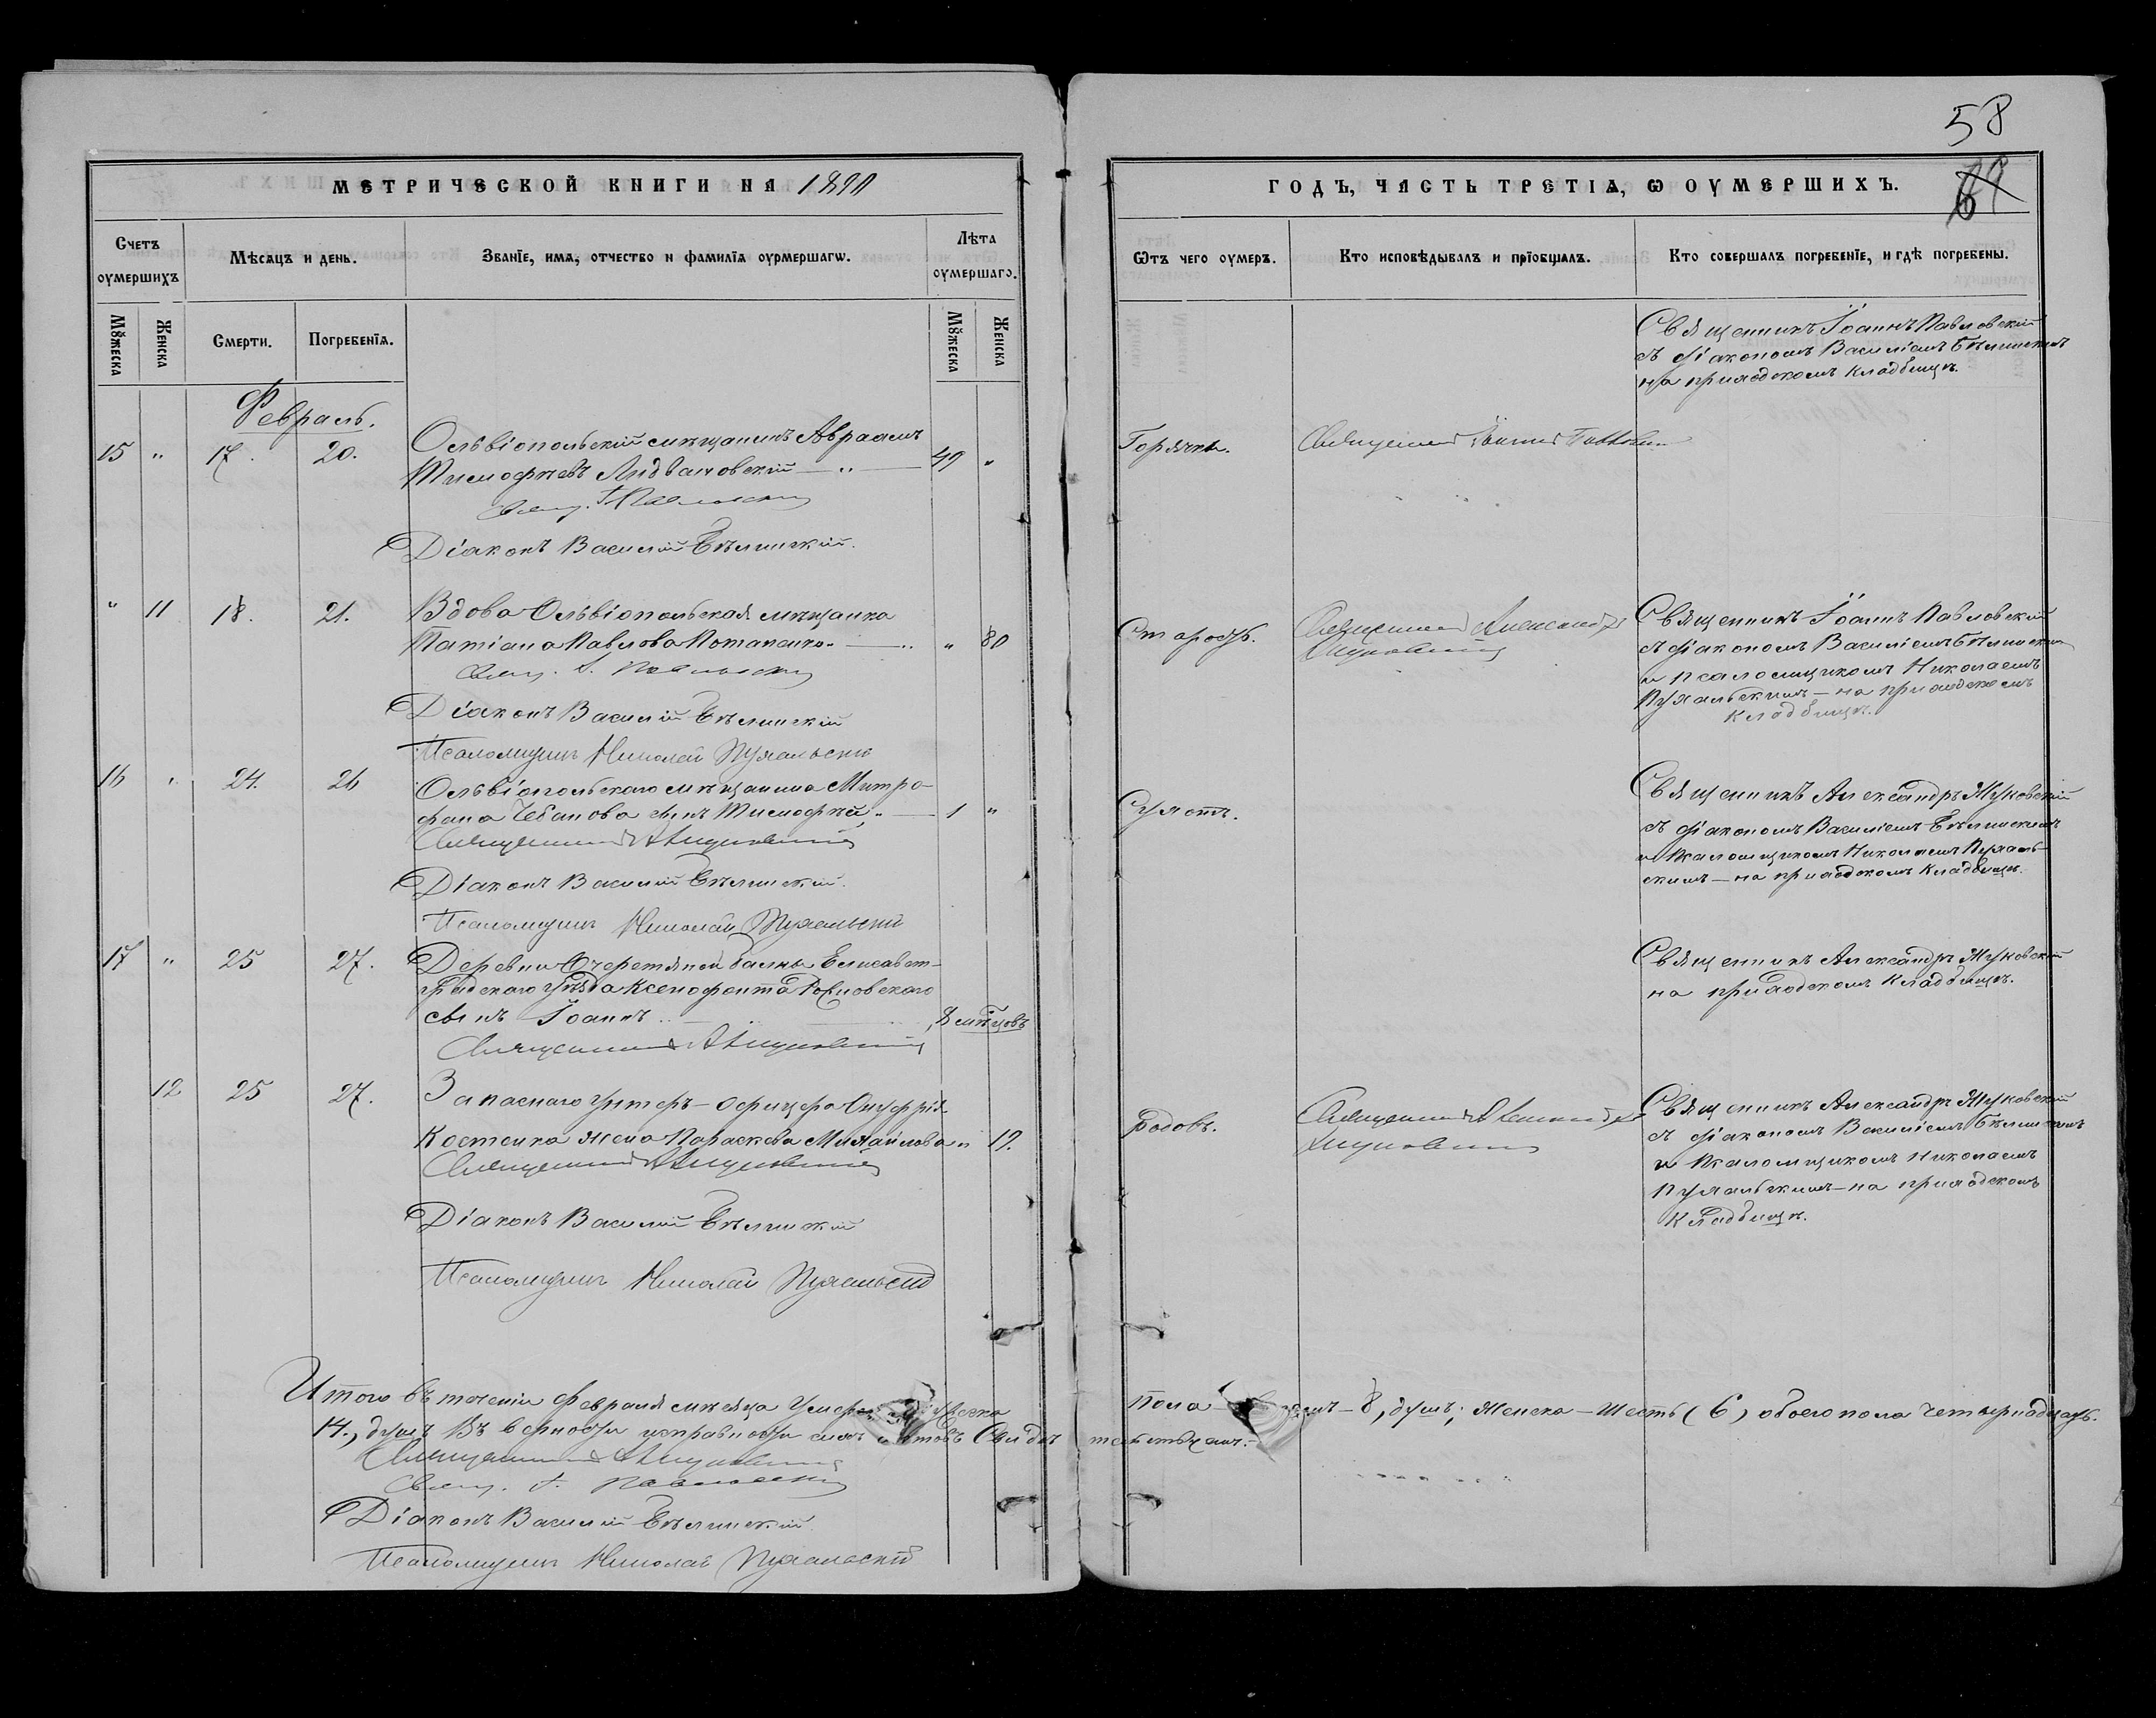 МЕТРИЧЕСКОЙ КНИГИ НА 1890
Счетъ оумершихъ
Мѣсяцъ и день.
Званіе, имя, отчество и фамилія оурмершагω.
Лѣта оумершаго.
Мꙋжеска
Женска
Смерти.
Погребенія.
Мꙋжеска
Женска
Февраль.
15 " 17. 20. Ольвіопольскій мѣщанинъ Авраамъ
Тимофѣевъ Лидвановскій — " — 49 "
Свящ. І. Павловскій
Діаконъ Василій Бѣлинскій.
" 11 18. 21. Вдова Ольвіопольская мѣщанка
Татіана Павлова Потапенко. — " 80
Свящ. І. Павловскій
Діаконъ Василій Бѣлинскій
Псаломщикъ Николай Пухальскій
16 " 24. 26 Ольвіопольскаго мѣщанина Митро-
фана Чебанова сынъ Тимофѣй " — 1 "
Священникъ А Жуковскій
Діаконъ Василій Бѣлинскій.
Псаломщикъ Николай Пухальскій
17 " 25 27. Деревни Очеретяной балки Елисавет-
градскаго уѣзда Ксенофонта
сынъ Іоаннъ 8 мѣсяцовъ
Священникъ А Жуковскій
12 25 27. Запаснаго унтеръ-офицера Онуфрія
Костенка жена Параскева Михайлова " 19.
Священникъ А Жуковскій
Діаконъ Василій Бѣлинскій
Псаломщикъ Николай Пухальскій
Итого въ теченіи Февраля мѣсяца умерло
14, душъ Въ вѣрности
Священникъ А Жуковскій
Свящ. І. Павловскій
Діаконъ Василій Бѣлинскій
Псаломщикъ Николай Пухальскій
58
ГОДЪ, ЧАСТЬ ТРЕТІѦ, Ѡ ОУМЕРШИХЪ.
Ѿтъ чего оумеръ.
Кто исповѣдывалъ и пріобщалъ.
Кто совершалъ погребеніе, и гдѣ погребены.
Священникъ Іоаннъ Павловскій
съ діакономъ Василіемъ Бѣлинскимъ
на приходскомъ кладбищѣ.
Горячки.
Священникъ Іоаннъ Павловскій
Старость.
Священникъ Александръ
Жуковскій
Священникъ Іоаннъ Павловскій
съ діакономъ Василіемъ Бѣлинскимъ
и псаломщикомъ Николаемъ
Пухальскимъ — на приходскомъ
кладбищѣ.
Сухотъ.
Священникъ Александръ Жуковскій
съ діакономъ Василіемъ Бѣлинскимъ
и псаломщикомъ Николаемъ Пухаль-
скимъ — на приходскомъ кладбищѣ.
Священникъ Александръ Жуковскій
на приходскомъ кладбищѣ.
Родовъ.
Священникъ Александръ
Жуковскій
Священникъ Александръ Жуковскій
съ діакономъ Василіемъ Бѣлинскимъ
и псаломщикомъ Николаемъ
Пухальскимъ — на приходскомъ
кладбищѣ.
пола — 8, душъ; женска — шесть (6) обоего пола четырнадцать.